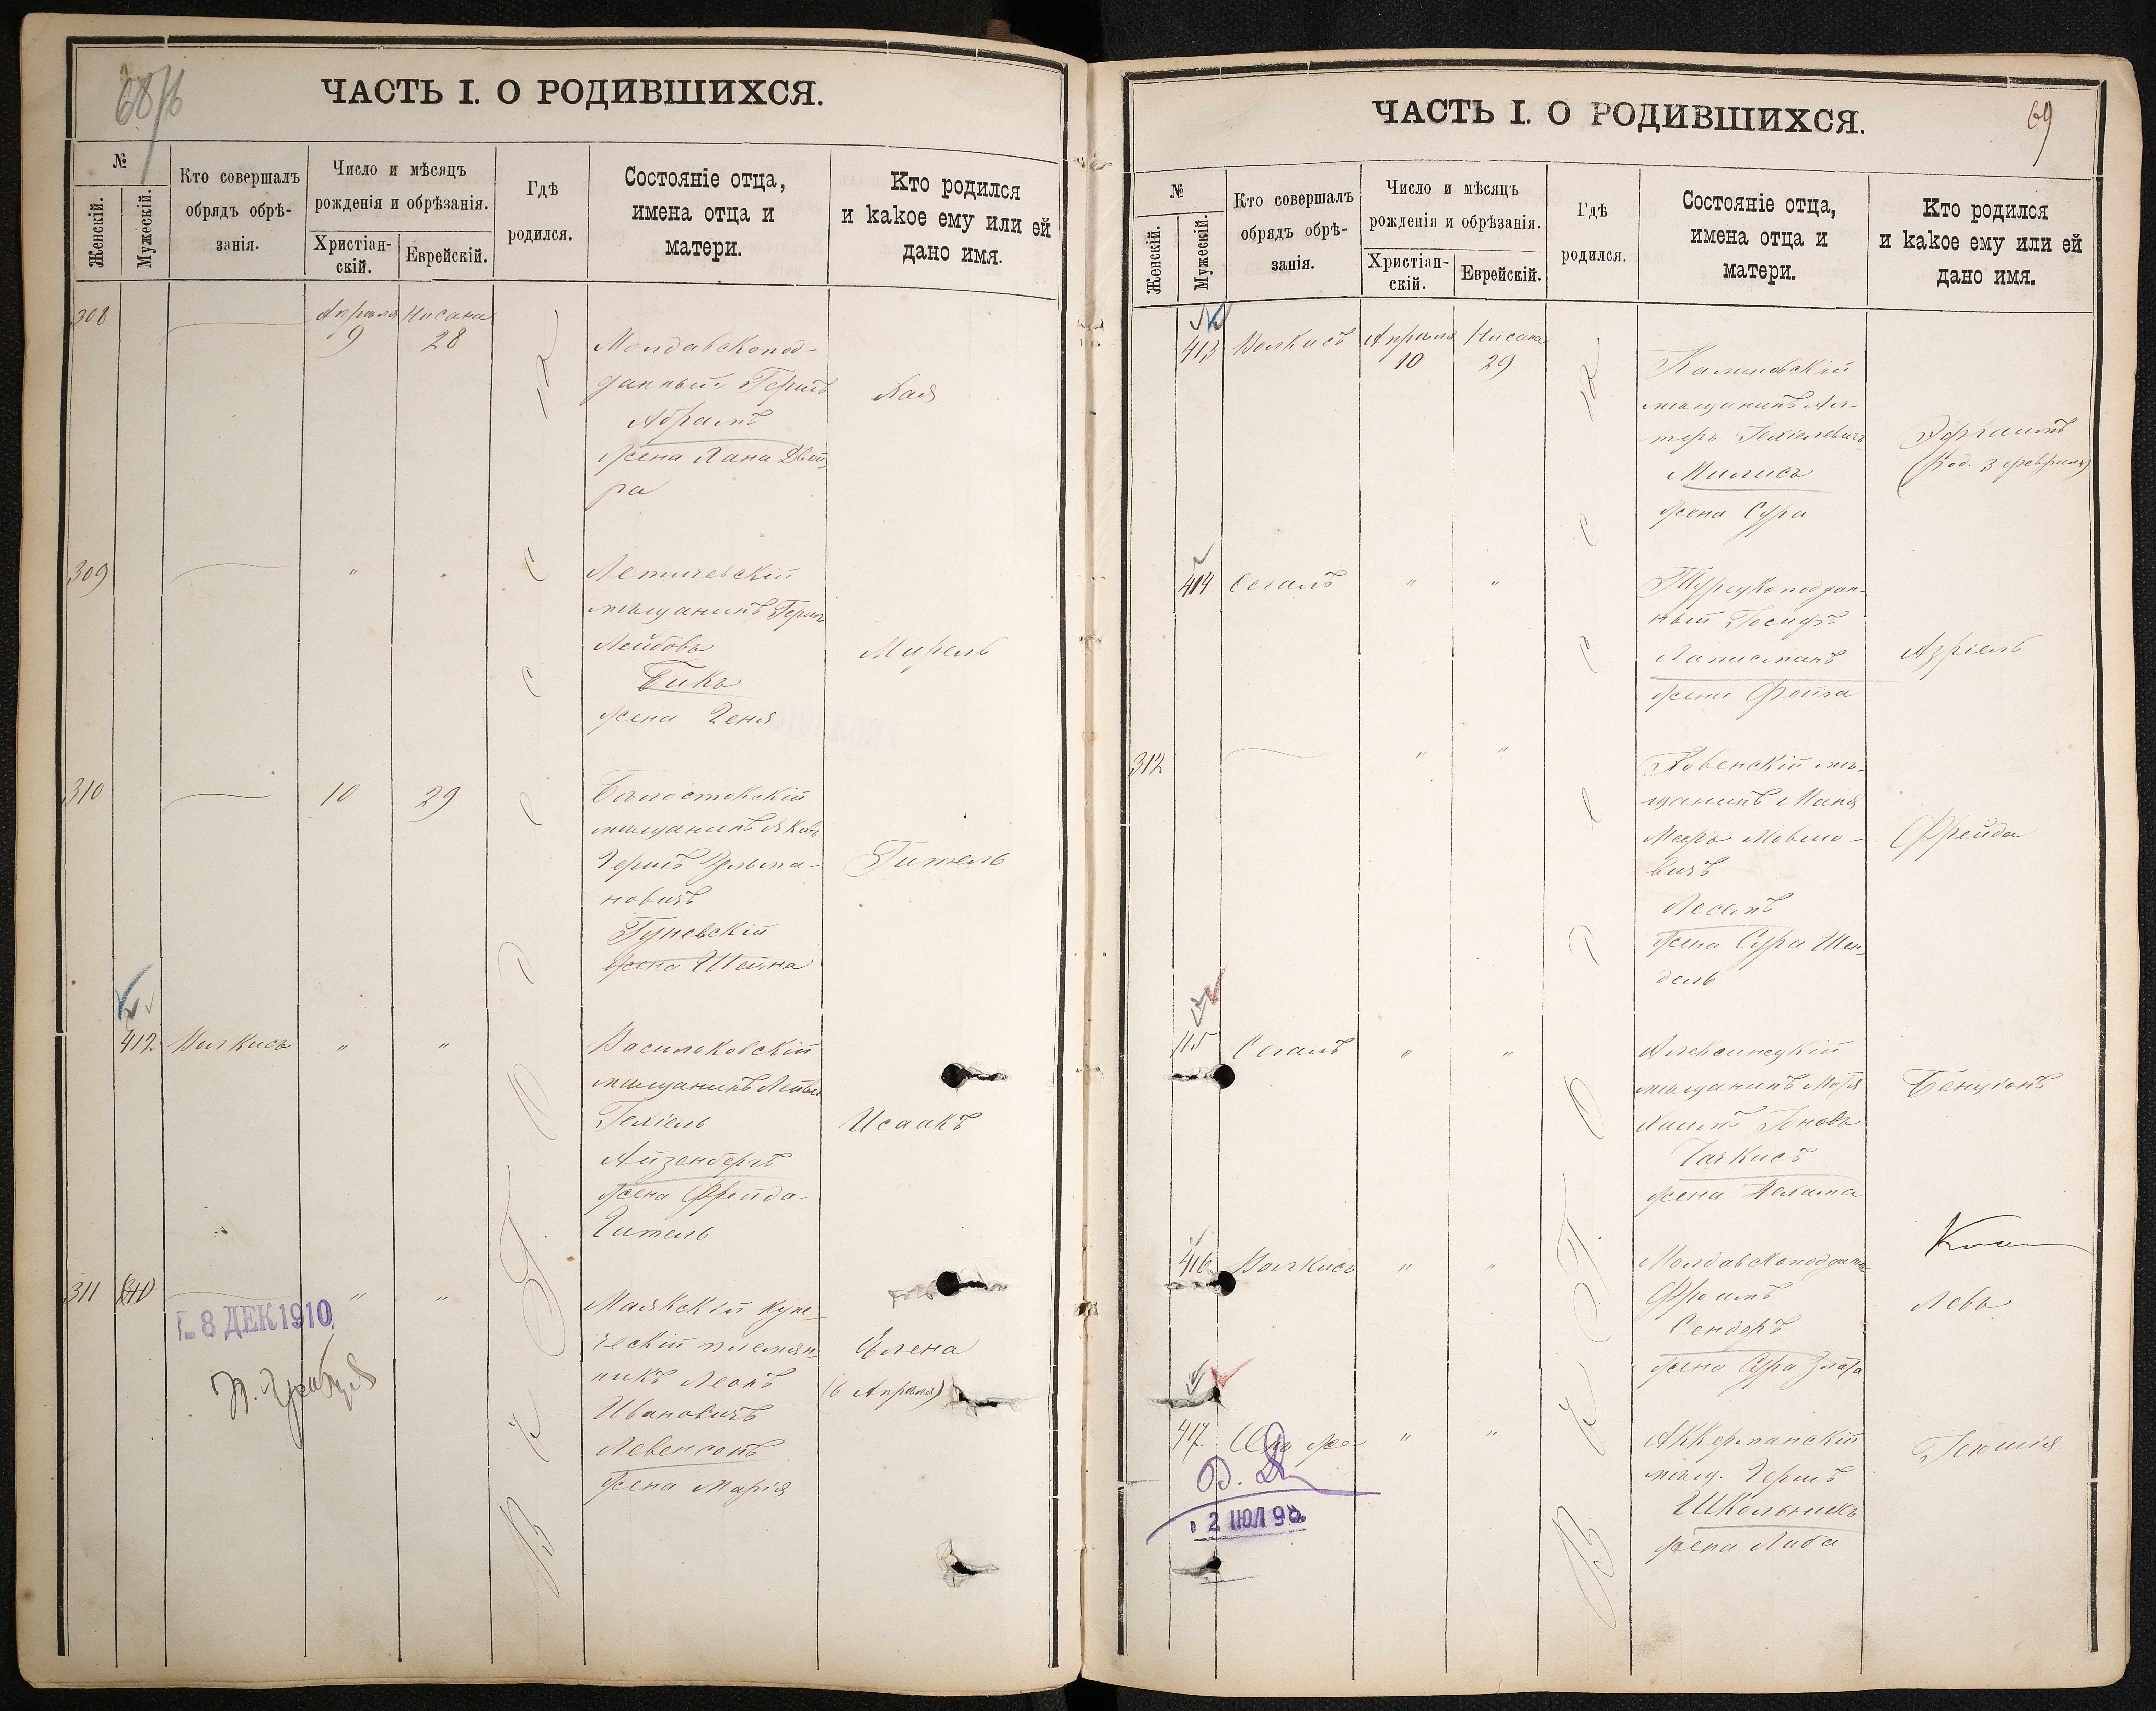 68
ЧАСТЬ I. О РОДИВШИХСЯ.
№
Женскій.
Мужескій.
Кто совершалъ
обрядъ обрѣ-
занія.
Число и мѣсяцъ
рожденія и обрѣзанія.
Христіан-
скій.
Еврейскій.
Гдѣ
родился.
Состояніе отца,
имена отца и
матери.
Кто родился
и какое ему или ей
дано имя.
308
Апрѣля
9
Нисана
28
Молдавскопод-
данный Гершъ
Абрамъ
жена Хана Двой-
ра
Хая
309
"
"
Летичевскій
мѣщанинъ Герш
Лейбовъ
Пикъ
жена Геня
Мирель
310
10
29
Бѣлостокскій
мѣщанинъ Яковъ
Гершъ Зельма-
новичъ
Гуневскій
жена Шейна
Гитель
412
Волкисъ
"
"
Васильковскій
мѣщанинъ Лейви
Іехіель
Айзенбергъ
жена Фрейда-
Гитель
Исаакъ
311
"
"
8 ДЕК 1910
Маякскій купе-
ческій племян-
никъ Леонъ
Ивановичъ
Левенсонъ
жена Марія
Елена
(6 Апрѣля)
69
ЧАСТЬ I. О РОДИВШИХСЯ.
№
Женскій.
Мужескій.
Кто совершалъ
обрядъ обрѣ-
занія.
Число и мѣсяцъ
рожденія и обрѣзанія.
Христіан-
скій.
Еврейскій.
Гдѣ
родился.
Состояніе отца,
имена отца и
матери.
Кто родился
и какое ему или ей
дано имя.
413
Волкисъ
Апрѣля
10
Нисана
29
мѣщанинъ Ал-
теръ Іехіелевичъ
Милисъ
жена Сура
Эфраимъ
(род. 3 февраля)
414
Сегалъ
"
"
Турецкоподдан-
ный Іосифъ
Лаписманъ
жена Фейга
Азріель
312
"
"
Ковенскій мѣ-
щанинъ Маня
Меръ Мовшо-
вичъ
Лесемъ
жена Сура Шен-
дель
Фрейда
415
Сегалъ
"
"
Алексинецкій
мѣщанинъ Мотя
Хаимъ Іоновъ
Чачкисъ
жена Нехама
Бенціонъ
416
Волкисъ
"
"
Молдавскоподдан
Фроимъ
Сендеръ
жена Сура Злата
Левъ
417
Онъ же
"
"
2 ИЮЛ 98
Аккерманскій
мѣщ. Гершъ
Школьникъ
жена Либа
В Ъ Г О Р О Д Ѣ